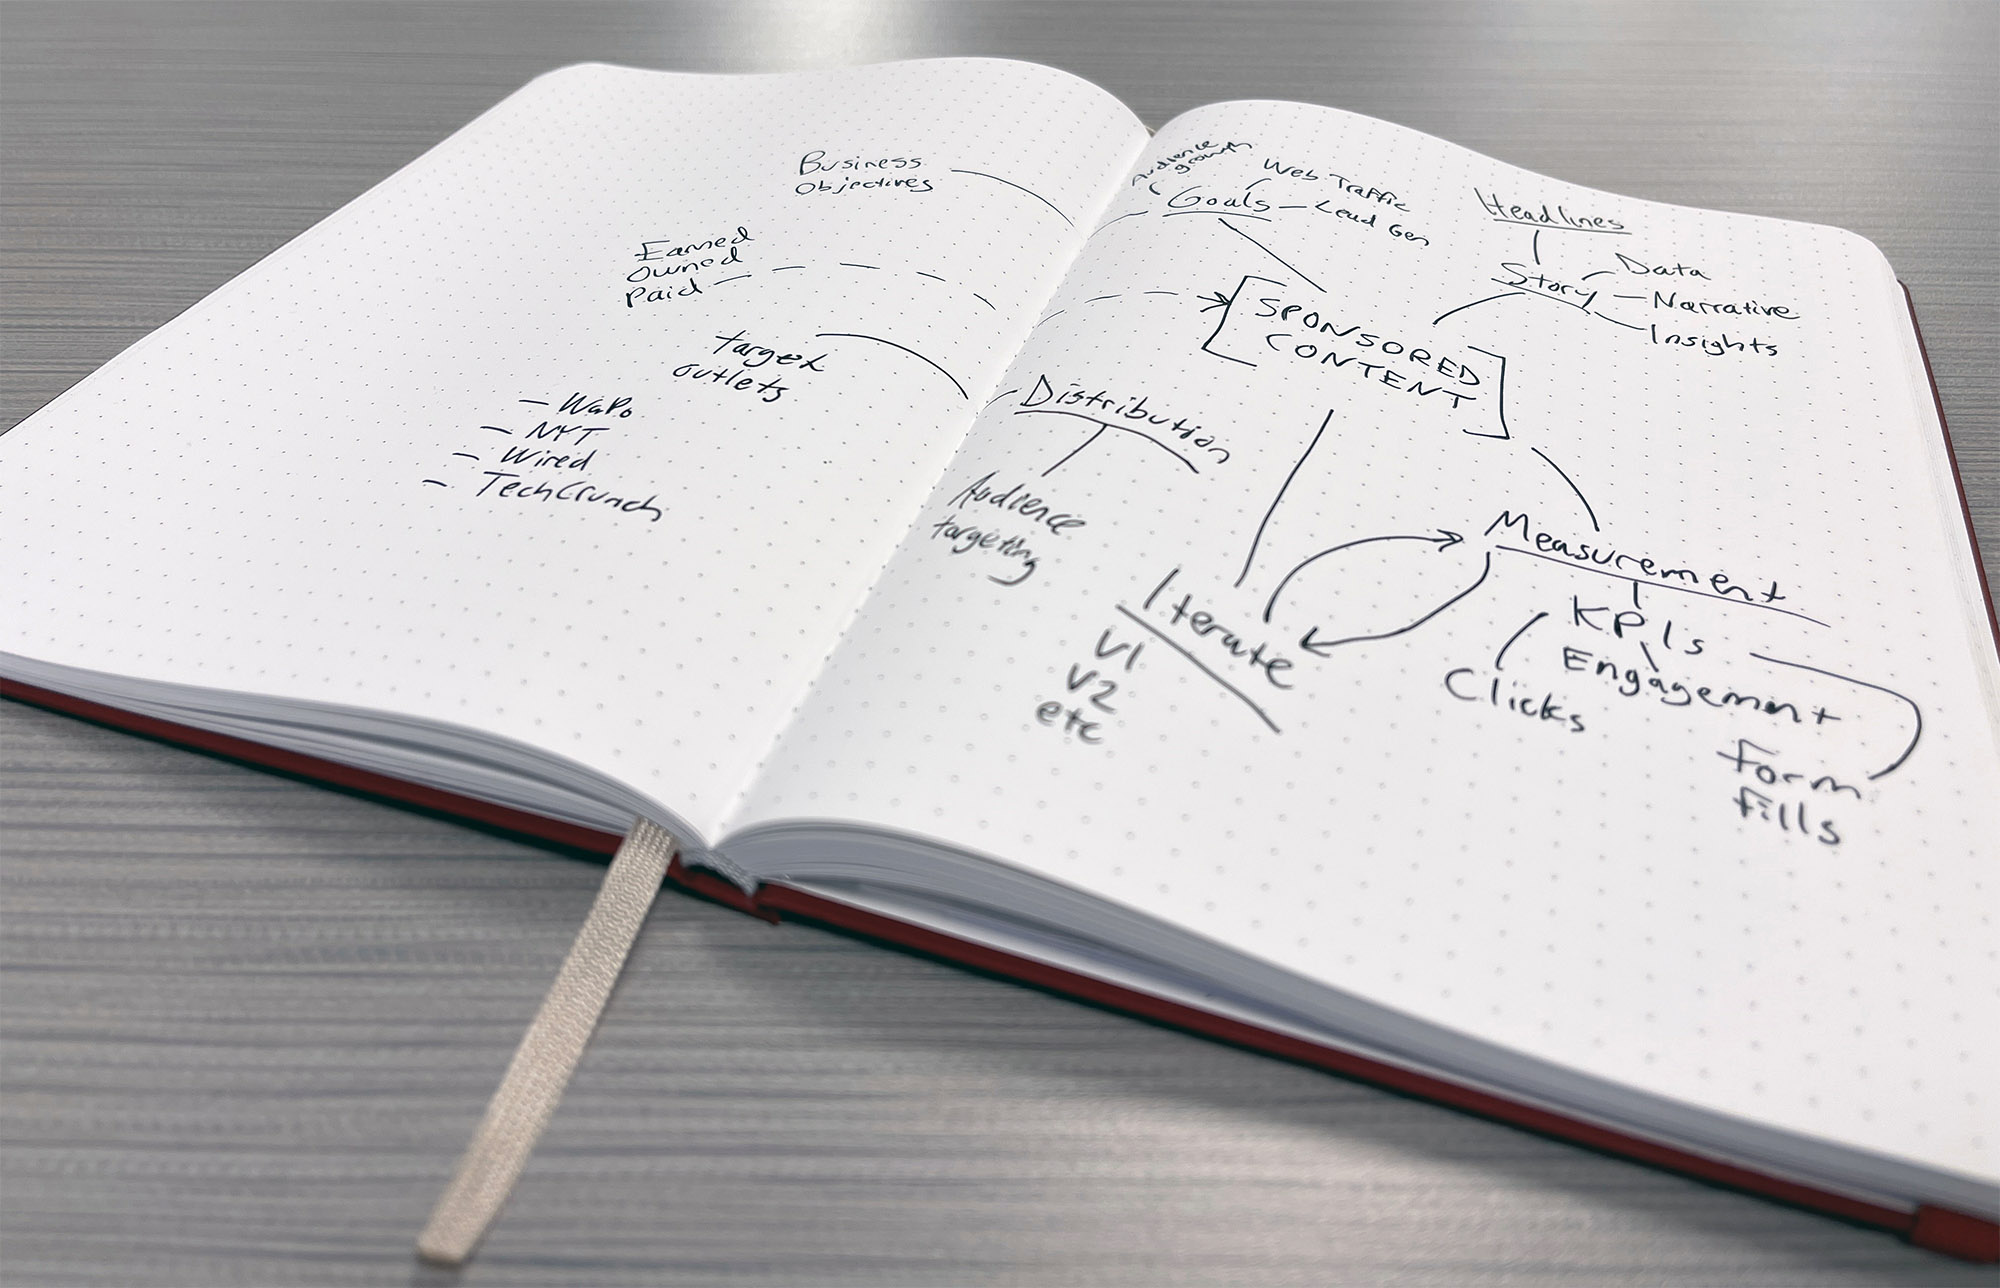 Business
Objectives
Earned
Owned
Paid
Target
Outlets
- WaPo
- NYT
- Wired
- TechCrunch
Audience
growth
Goals
Web Traffic
Lead Gen
Headlines
Story
Data
Narrative
Insights
[SPONSORED
CONTENT]
Distribution
Audience
targeting
Iterate
V1
V2
etc
Measurement
KPIs
Clicks
Engagement
Form
fills